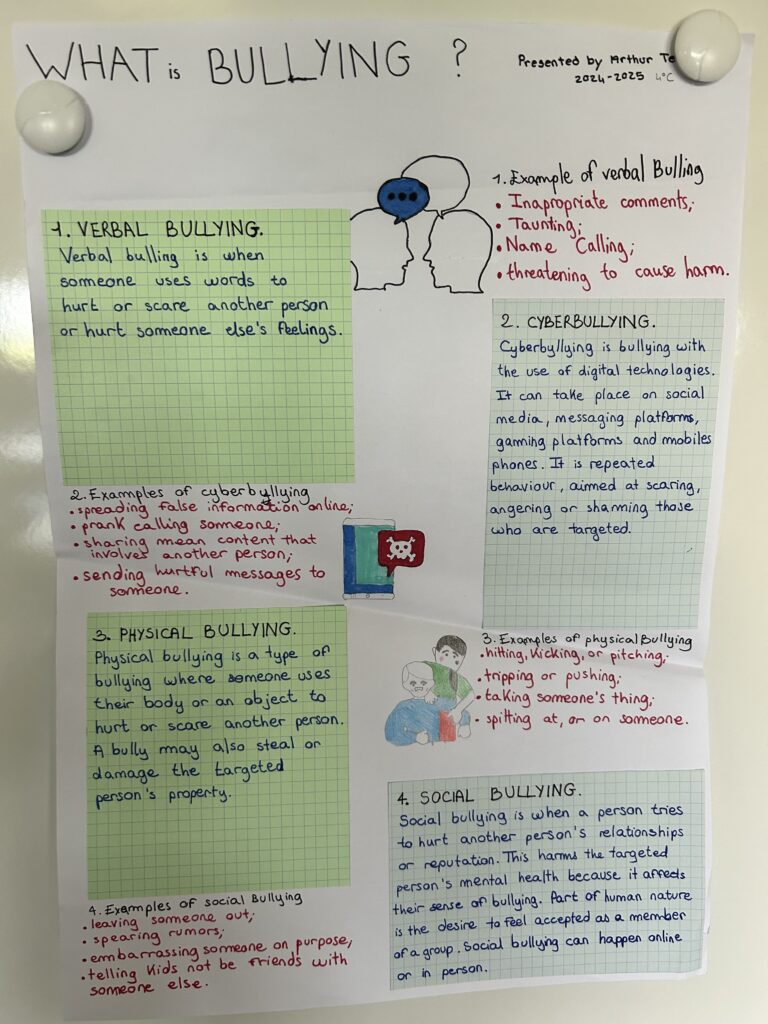 WHAT is BULLYING ?
Presented by Arthur Te
2024-2025 4°C
1. VERBAL BULLYING.
Verbal bulling is when
someone uses words to
hurt or scare another person
or hurt someone else's feelings.
1. Example of verbal Bulling
• Inapropriate comments;
• Taunting;
• Name Calling;
• threatening to cause harm.
2. CYBERBULLYING.
Cyberbyllying is bullying with
the use of digital technologies.
It can take place on social
media, messaging platforms,
gaming platforms and mobiles
phones. It is repeated
behaviour, aimed at scaring,
angering or shaming those
who are targeted.
2. Examples of cyberbyllying
• spreading false information online;
• prank calling someone;
• sharing mean content that
involves another person;
• sending hurtful messages to
someone.
3. PHYSICAL BULLYING.
Physical bullying is a type of
bullying where someone uses
their body or an object to
hurt or scare another person.
A bully may also steal or
damage the targeted
person's property.
3. Examples of physical Bullying
• hitting, Kicking, or pitching;
• tripping or pushing;
• taking someone's thing;
• spitting at, or on someone.
4. SOCIAL BULLYING.
Social bullying is when a person tries
to hurt another person's relationships
or reputation. This harms the targeted
person's mental health because it affects
their sense of bullying. Part of human nature
is the desire to feel accepted as a member
of a group. Social bullying can happen online
or in person.
4. Examples of social Bullying
• leaving someone out;
• spearing rumors;
• embarrassing someone on purpose;
• telling Kids not be friends with
someone else.